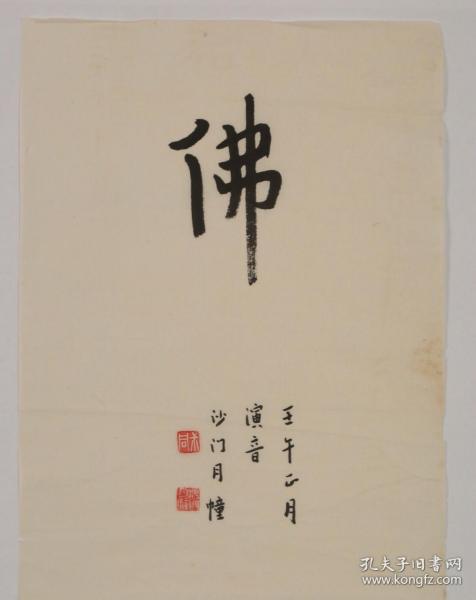 佛
壬午正月
演音
沙门月幢
孔夫子旧书网
www.kongfz.com